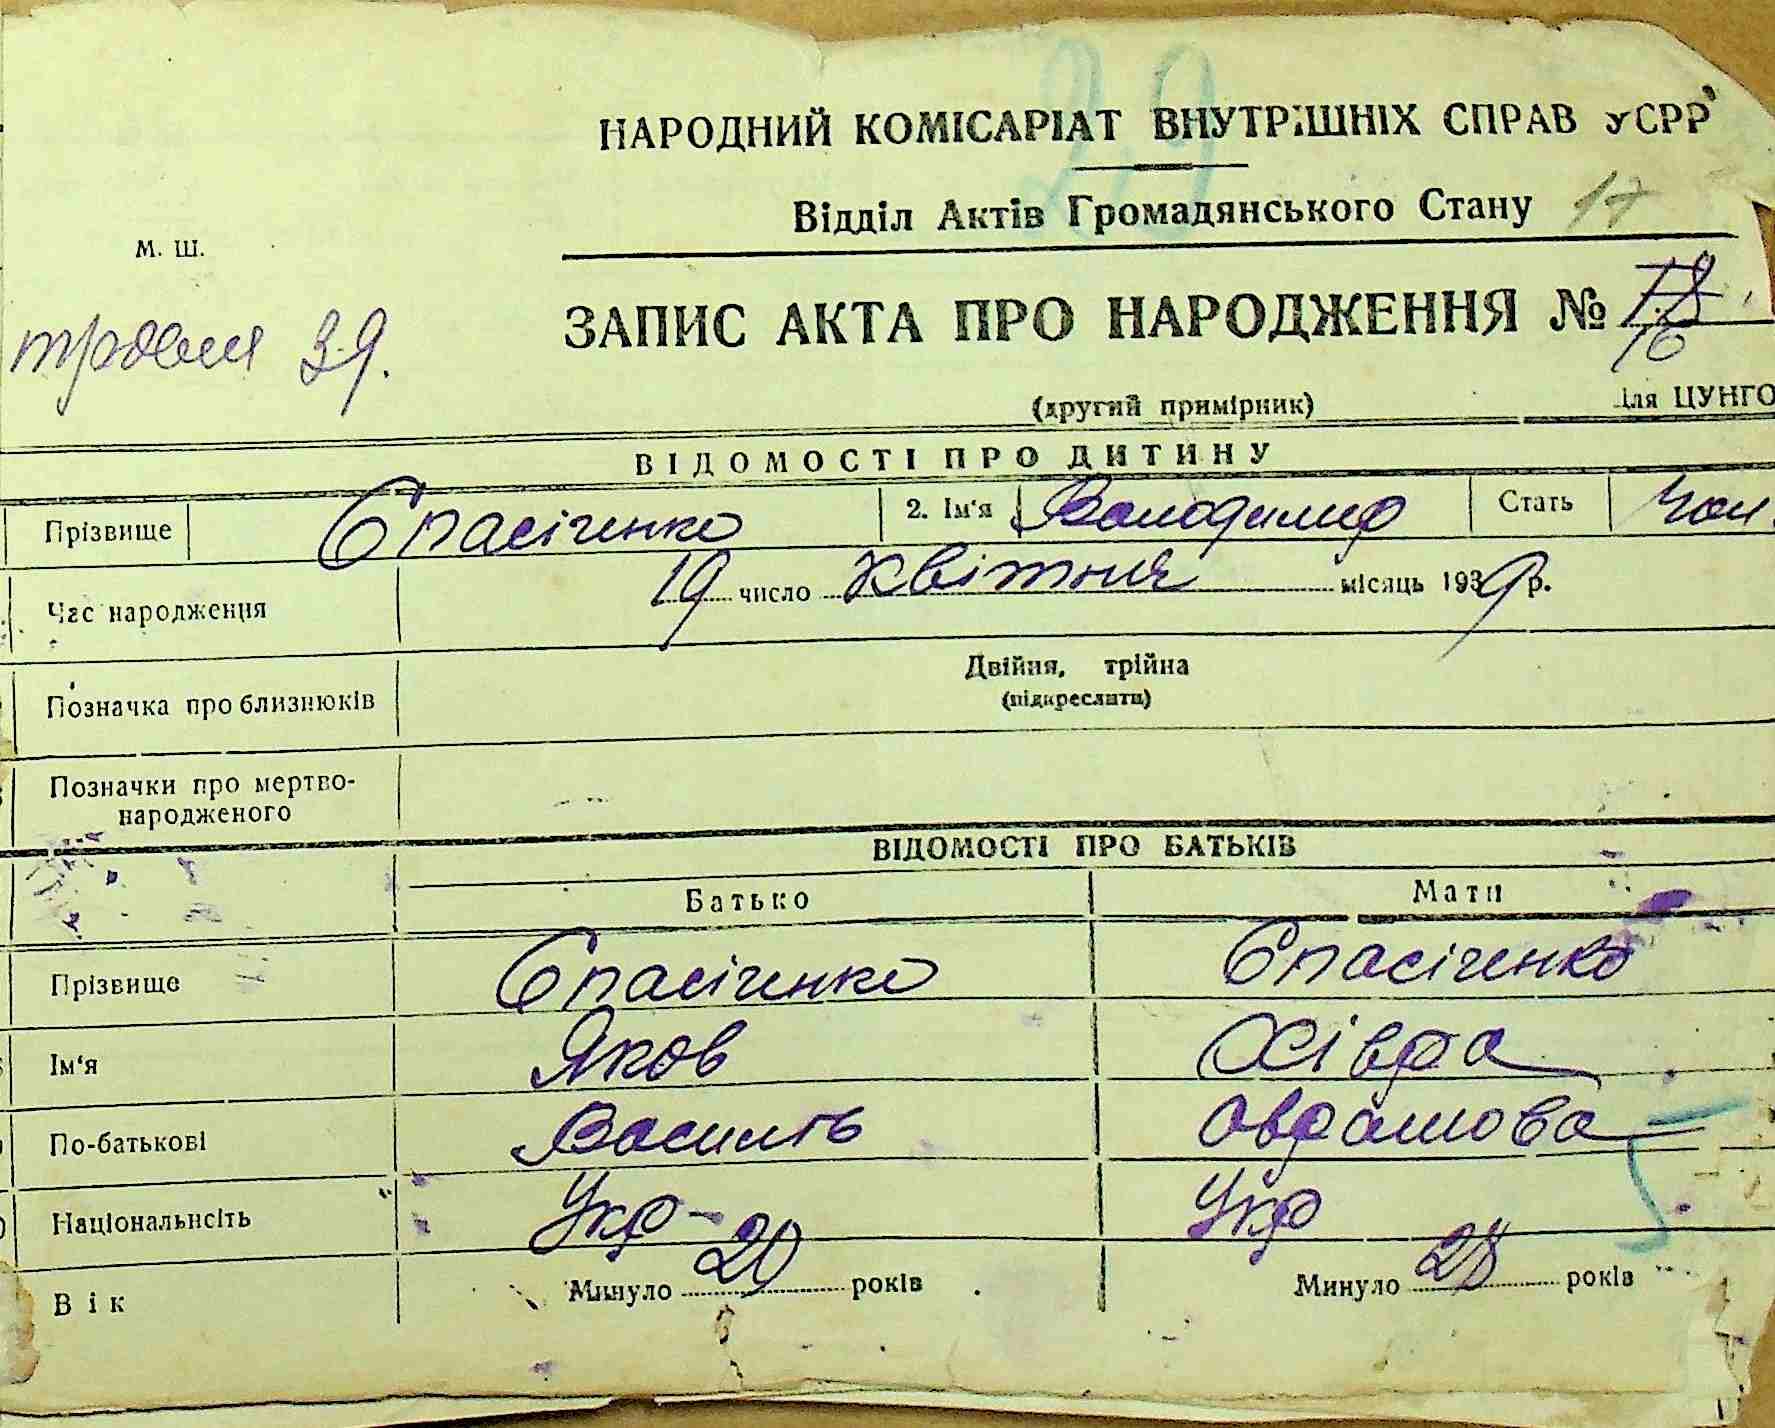 29
НАРОДНИЙ КОМІСАРІАТ ВНУТРІШНІХ СПРАВ УСРР
Відділ Актів Громадянського Стану 17
М. Ш.
ЗАПИС АКТА ПРО НАРОДЖЕННЯ №
16
травня 39.
(другий примірник) Для ЦУНГО
ВІДОМОСТІ ПРО ДИТИНУ
Прізвище Спасіченко 2. Ім'я Володимир Стать Чол.
Час народження 19 число квітня місяць 1939 р.
Позначка про близнюків Двійня, трійна
(підкреслити)
Позначки про мертво-
народженого
ВІДОМОСТІ ПРО БАТЬКІВ
Батько Мати
Прізвище Спасіченко Спасіченко
Ім'я Яков Хівра
По-батькові Василь Аврамова
Національнсіть Укр Укр
Вік Минуло 20 років Минуло 28 років